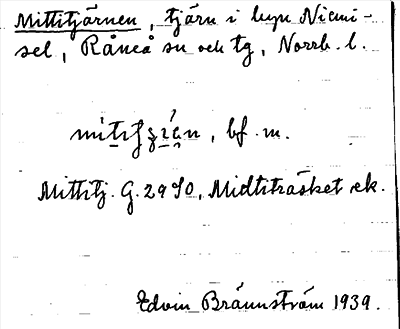 Mittitjärnen, tjärn i byn Niemi-
sel, Råneå sn och tg, Norrb. l.
bf. m.
Mittitj. G. 2950, Midtiträsket ek.
Edvin Brännström 1939.